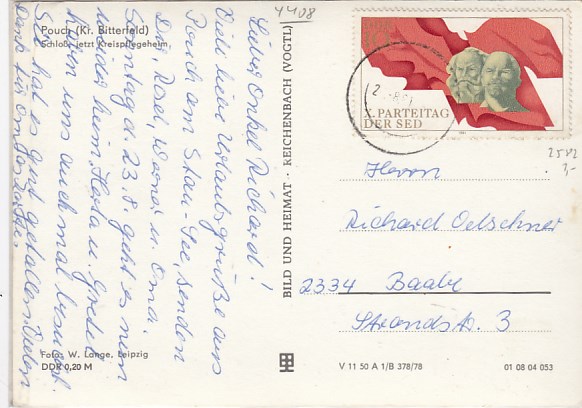 4408
Pouch (Kr. Bitterfeld)
Schloß, jetzt Kreispflegeheim
Lieber Onkel Richard!
Viele liebe Urlaubsgrüße aus
Pouch am Stau-See, senden
Dir Rosel, Werner u. Oma.
Sonntag d. 23.8. geht es nun
wieder heim. Herta u. Gretel
haben uns auch mal besucht.
Es hat es gut gefallen. Vielen
Dank für
Foto: W. Lange, Leipzig
DDR 0,20 M
BILD UND HEIMAT · REICHENBACH (VOGTL)
DDR
10
X. PARTEITAG
DER SED
2582
3,-
Herrn
Richard Oelschner
2334 Baabe
Strandstr. 3
V 11 50 A 1/B 378/78
01 08 04 053